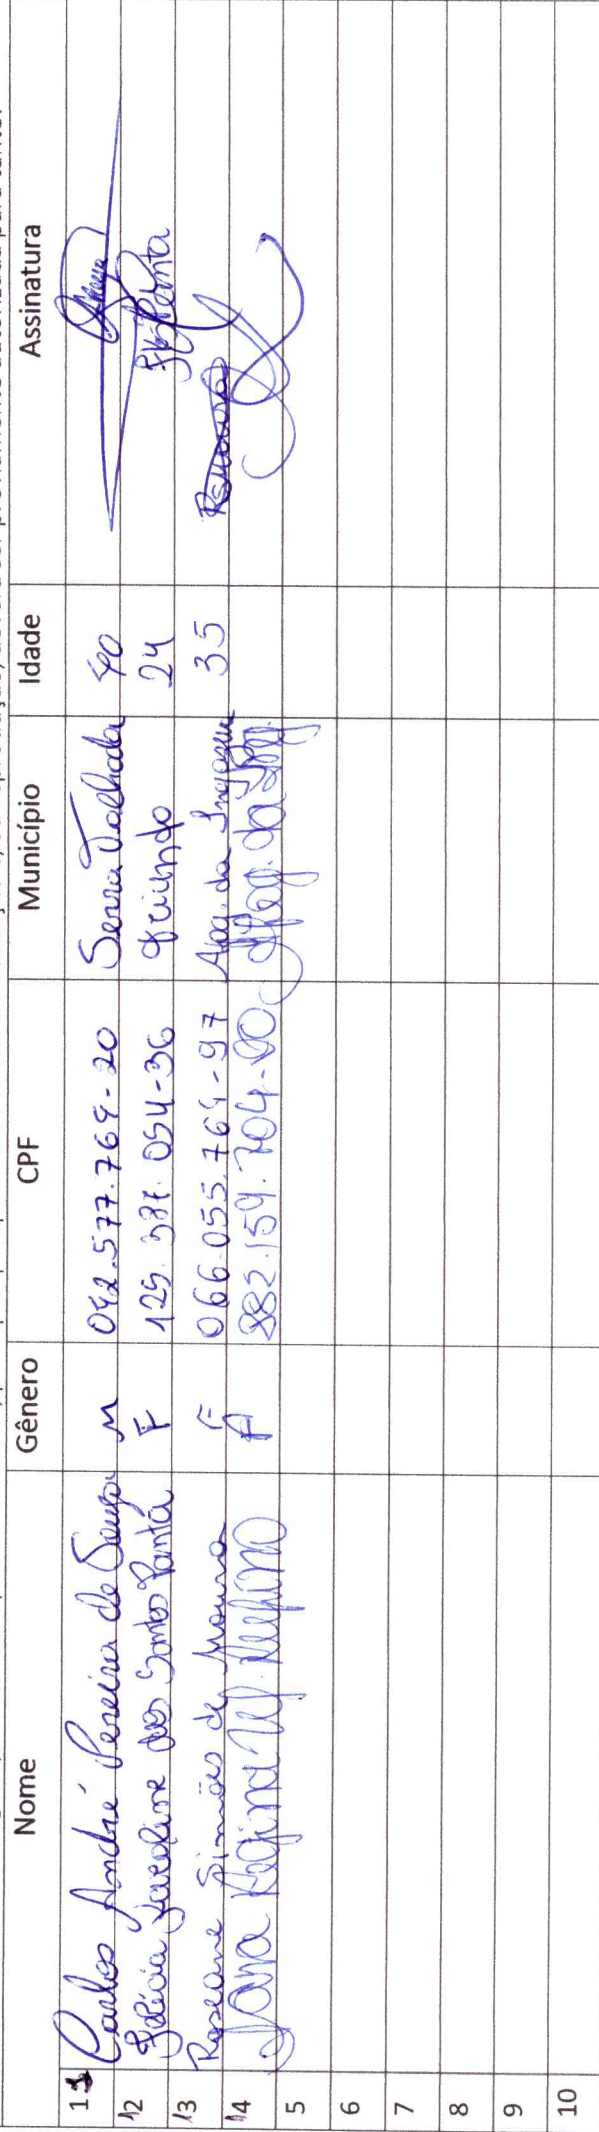 Nome Gênero CPF Município Idade Assinatura
11 Carlos André Pereira de Souza M 042.577.764-20 Serra Talhada 40
12 Jaroline dos Santos Panta F 054-36 24 Panta
13 Roseane Simões de Moura F 066.055.764-97 Afog. da Ingazeira 35 RSMoura
14 Iara Regina F 882.159.704-00 Afog. da Ing.
5
6
7
8
9
10